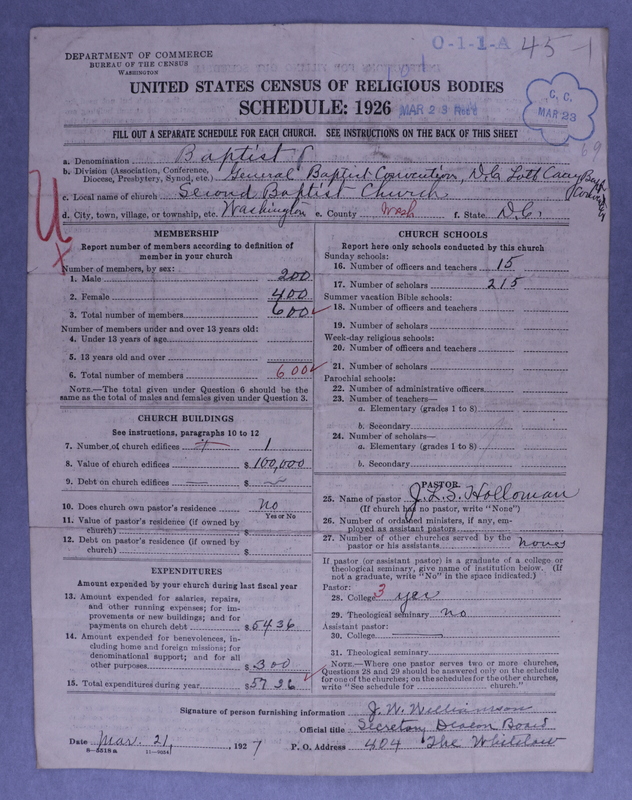 O-1-1-A 45-1
DEPARTMENT OF COMMERCE
BUREAU OF THE CENSUS
WASHINGTON
UNITED STATES CENSUS OF RELIGIOUS BODIES
SCHEDULE: 1926
MAR 23
C. C.
MAR 23
69
FILL OUT A SEPARATE SCHEDULE FOR EACH CHURCH. SEE INSTRUCTIONS ON THE BACK OF THIS SHEET
a. Denomination Baptist
b. Division (Association, Conference, Diocese, Presbytery, Synod, etc.) General Baptist Convention, D.C. Lott Carey Bapt
c. Local name of church Second Baptist Church
d. City, town, village, or township, etc. Washington e. County Wash f. State D.C.
MEMBERSHIP
Report number of members according to definition of
member in your church
Number of members, by sex:
1. Male 200
2. Female 400
3. Total number of members 600
Number of members under and over 13 years old:
4. Under 13 years of age
5. 13 years old and over
6. Total number of members 600
NOTE.—The total given under Question 6 should be the
same as the total of males and females given under Question 3.
CHURCH BUILDINGS
See instructions, paragraphs 10 to 12
7. Number of church edifices 1
8. Value of church edifices $ 100,000
9. Debt on church edifices $
10. Does church own pastor's residence No
Yes or No
11. Value of pastor's residence (if owned by
church) $
12. Debt on pastor's residence (if owned by
church) $
EXPENDITURES
Amount expended by your church during last fiscal year
13. Amount expended for salaries, repairs,
and other running expenses; for im-
provements or new buildings; and for
payments on church debt $ 5436
14. Amount expended for benevolences, in-
cluding home and foreign missions; for
denominational support; and for all
other purposes $ 300
15. Total expenditures during year $ 5736
CHURCH SCHOOLS
Report here only schools conducted by this church
Sunday schools:
16. Number of officers and teachers 15
17. Number of scholars 215
Summer vacation Bible schools:
18. Number of officers and teachers
19. Number of scholars
Week-day religious schools:
20. Number of officers and teachers
21. Number of scholars
Parochial schools:
22. Number of administrative officers
23. Number of teachers—
a. Elementary (grades 1 to 8)
b. Secondary
24. Number of scholars—
a. Elementary (grades 1 to 8)
b. Secondary
PASTOR
25. Name of pastor J. L. S. Holloman
(If church has no pastor, write "None")
26. Number of ordained ministers, if any, em-
ployed as assistant pastors
27. Number of other churches served by the
pastor or his assistants none
If pastor (or assistant pastor) is a graduate of a college or
theological seminary, give name of institution below. (If
not a graduate, write "No" in the space indicated.)
Pastor:
28. College 3 yes
29. Theological seminary no
Assistant pastor:
30. College
31. Theological seminary
NOTE.—Where one pastor serves two or more churches,
Questions 28 and 29 should be answered only on the schedule
for one of the churches; on the schedules for the other churches,
write "See schedule for church."
Signature of person furnishing information J. W. Williamson
Official title Secretary Deacon Board
Date Mar. 21, 1927 P. O. Address 404 The Whitelaw
8-5518a 11-9054